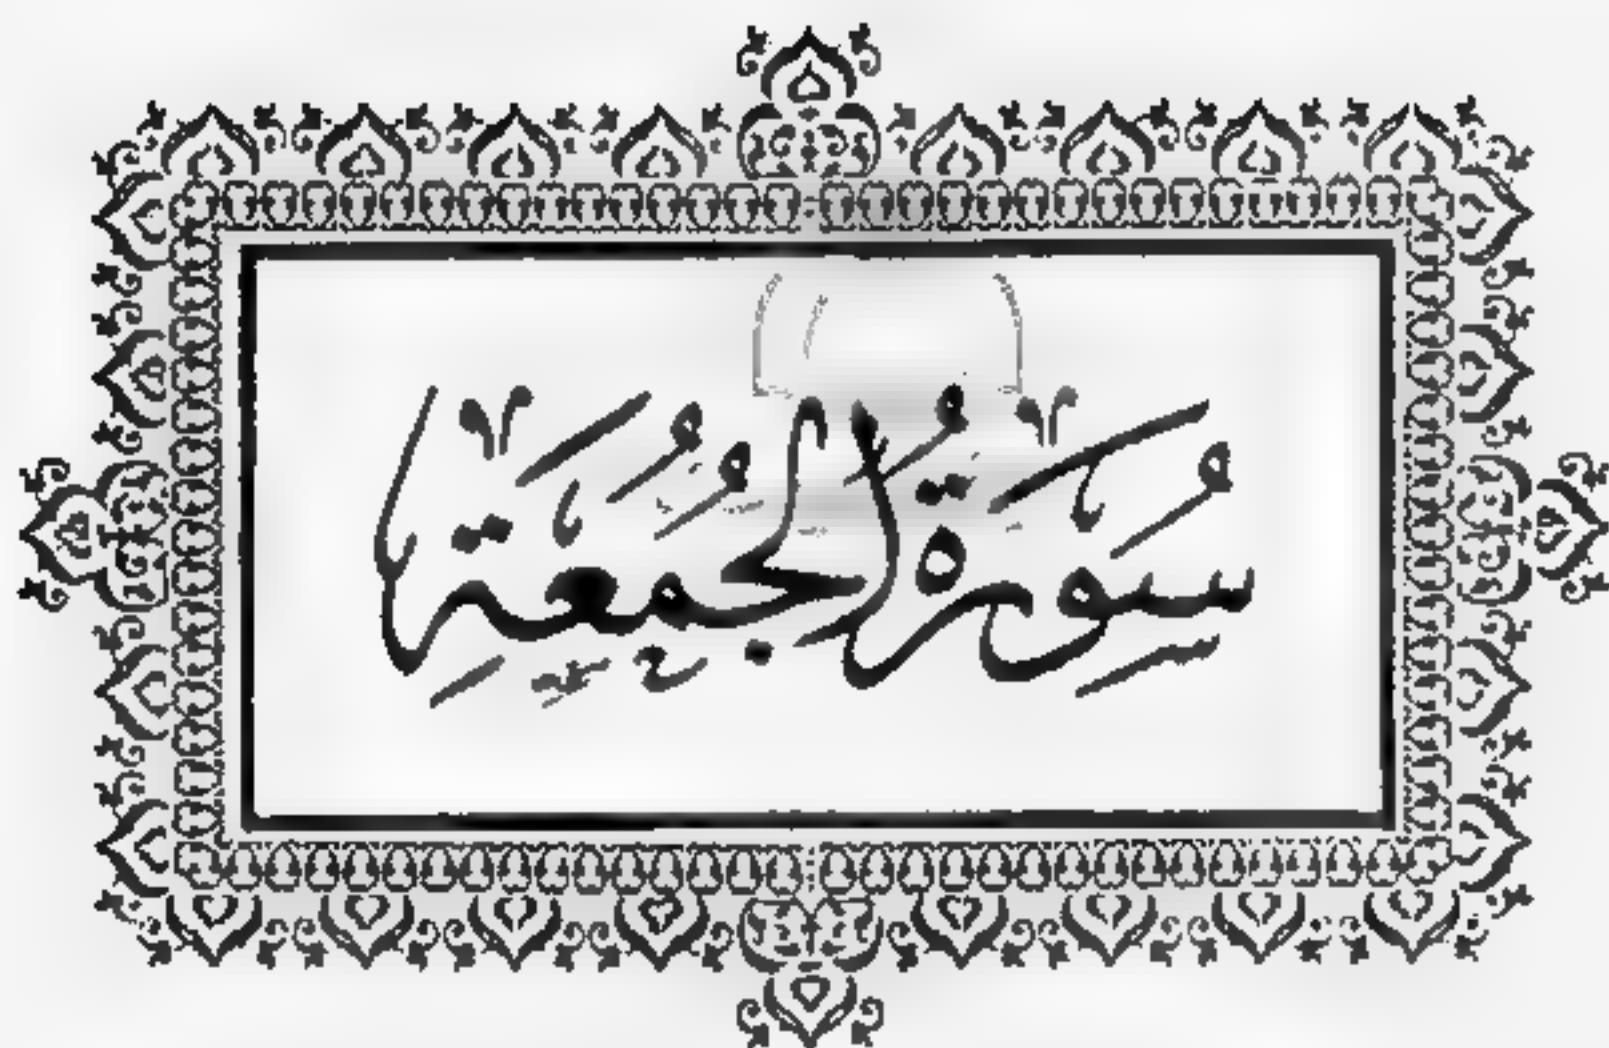 سُورَةُ الجُمُعَةِ